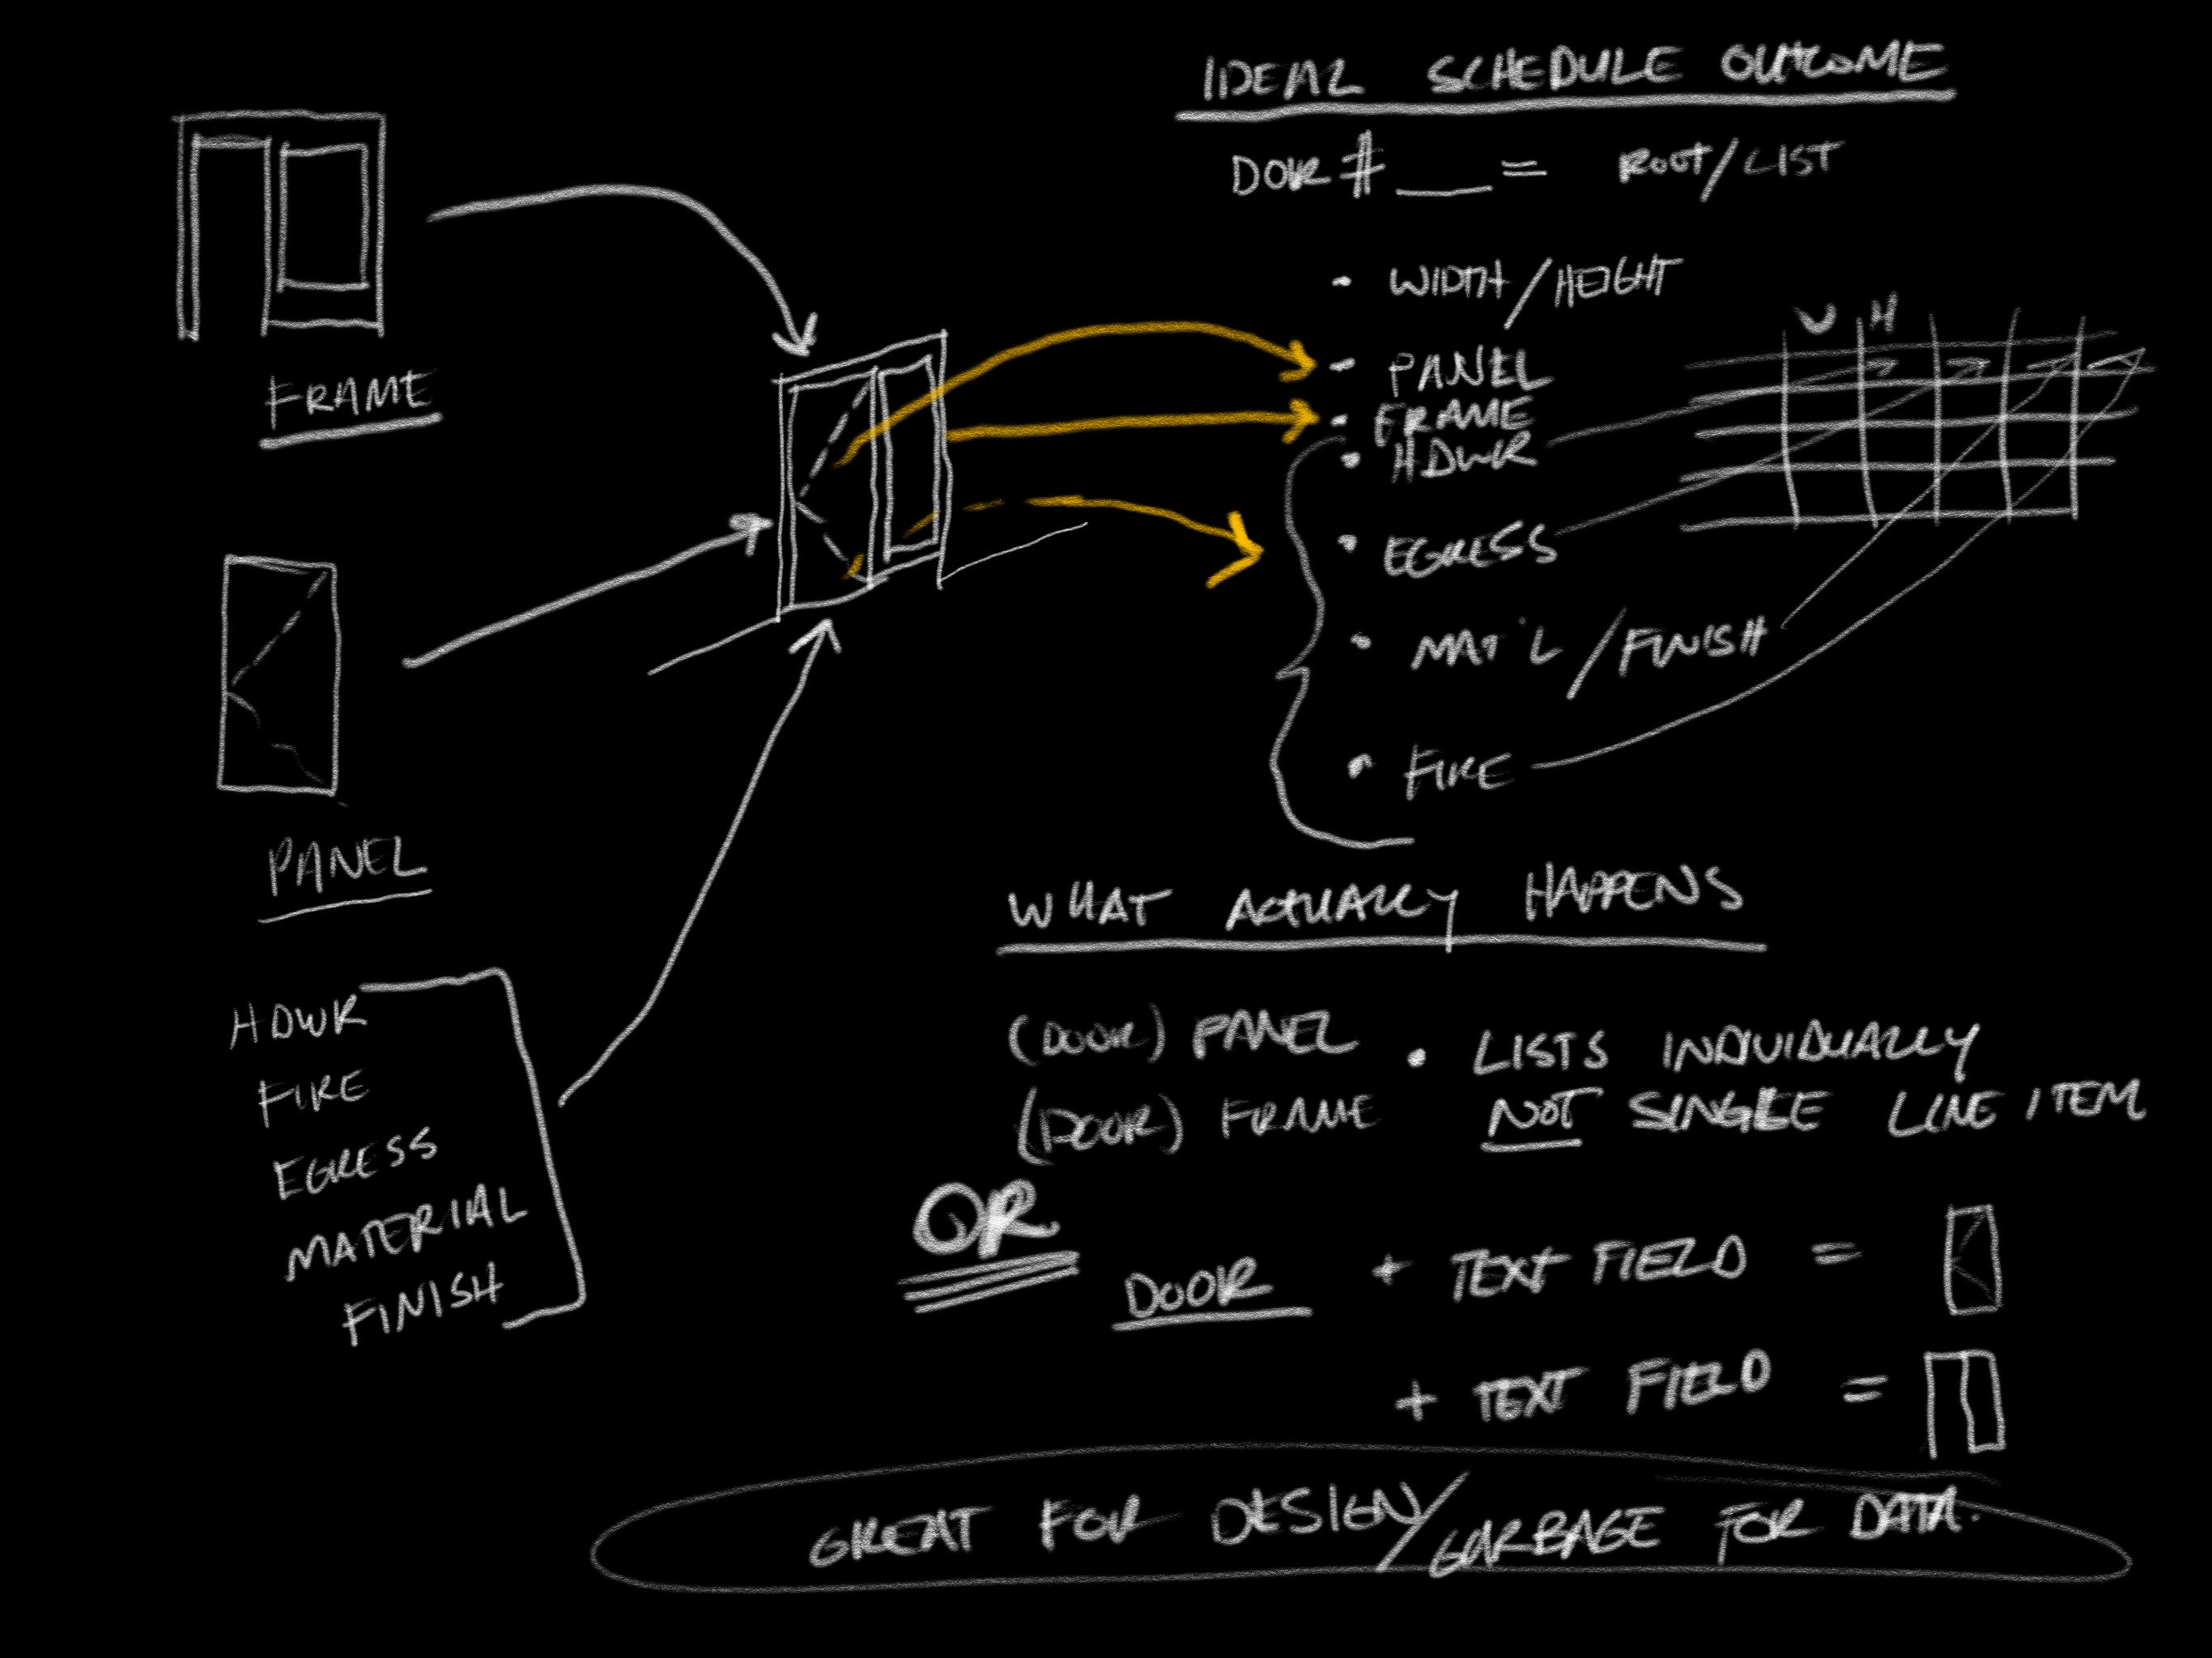 IDEAL SCHEDULE OUTCOME
DOOR #___ = ROOT/LIST
• WIDTH/HEIGHT
• PANEL
• FRAME
• HDWR
• EGRESS
• MAT'L/FINISH
• FIRE
W H
FRAME
PANEL
HDWR
FIRE
EGRESS
MATERIAL
FINISH
WHAT ACTUALLY HAPPENS
(DOOR) PANEL • LISTS INDIVIDUALLY
(DOOR) FRAME NOT SINGLE LINE ITEM
OR
DOOR + TEXT FIELD =
+ TEXT FIELD =
GREAT FOR DESIGN/GARBAGE FOR DATA.